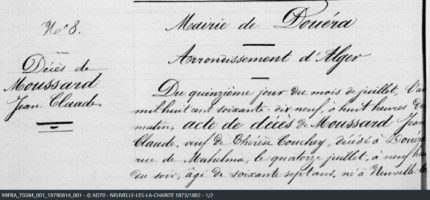 N° 8.
Décès de
Moussard
Jean Claude
Mairie de Douéra
Arrondissement d'Alger
Du quinzième jour du mois de juillet, l'an
mil huit cent soixante-dix neuf, à huit heures du
matin, acte de décès de Moussard Jean
Claude, veuf de Thérèse Couchey, décédé à Douéra
rue de Mahelma, le quatorze juillet, à neuf heures
du soir, âgé de soixante sept ans, né à Neuvelle-les
99FRA_70384_001_18790814_001 - © AD70 - NEUVELLE-LES-LA-CHARITE 1873/1882 - 1/2